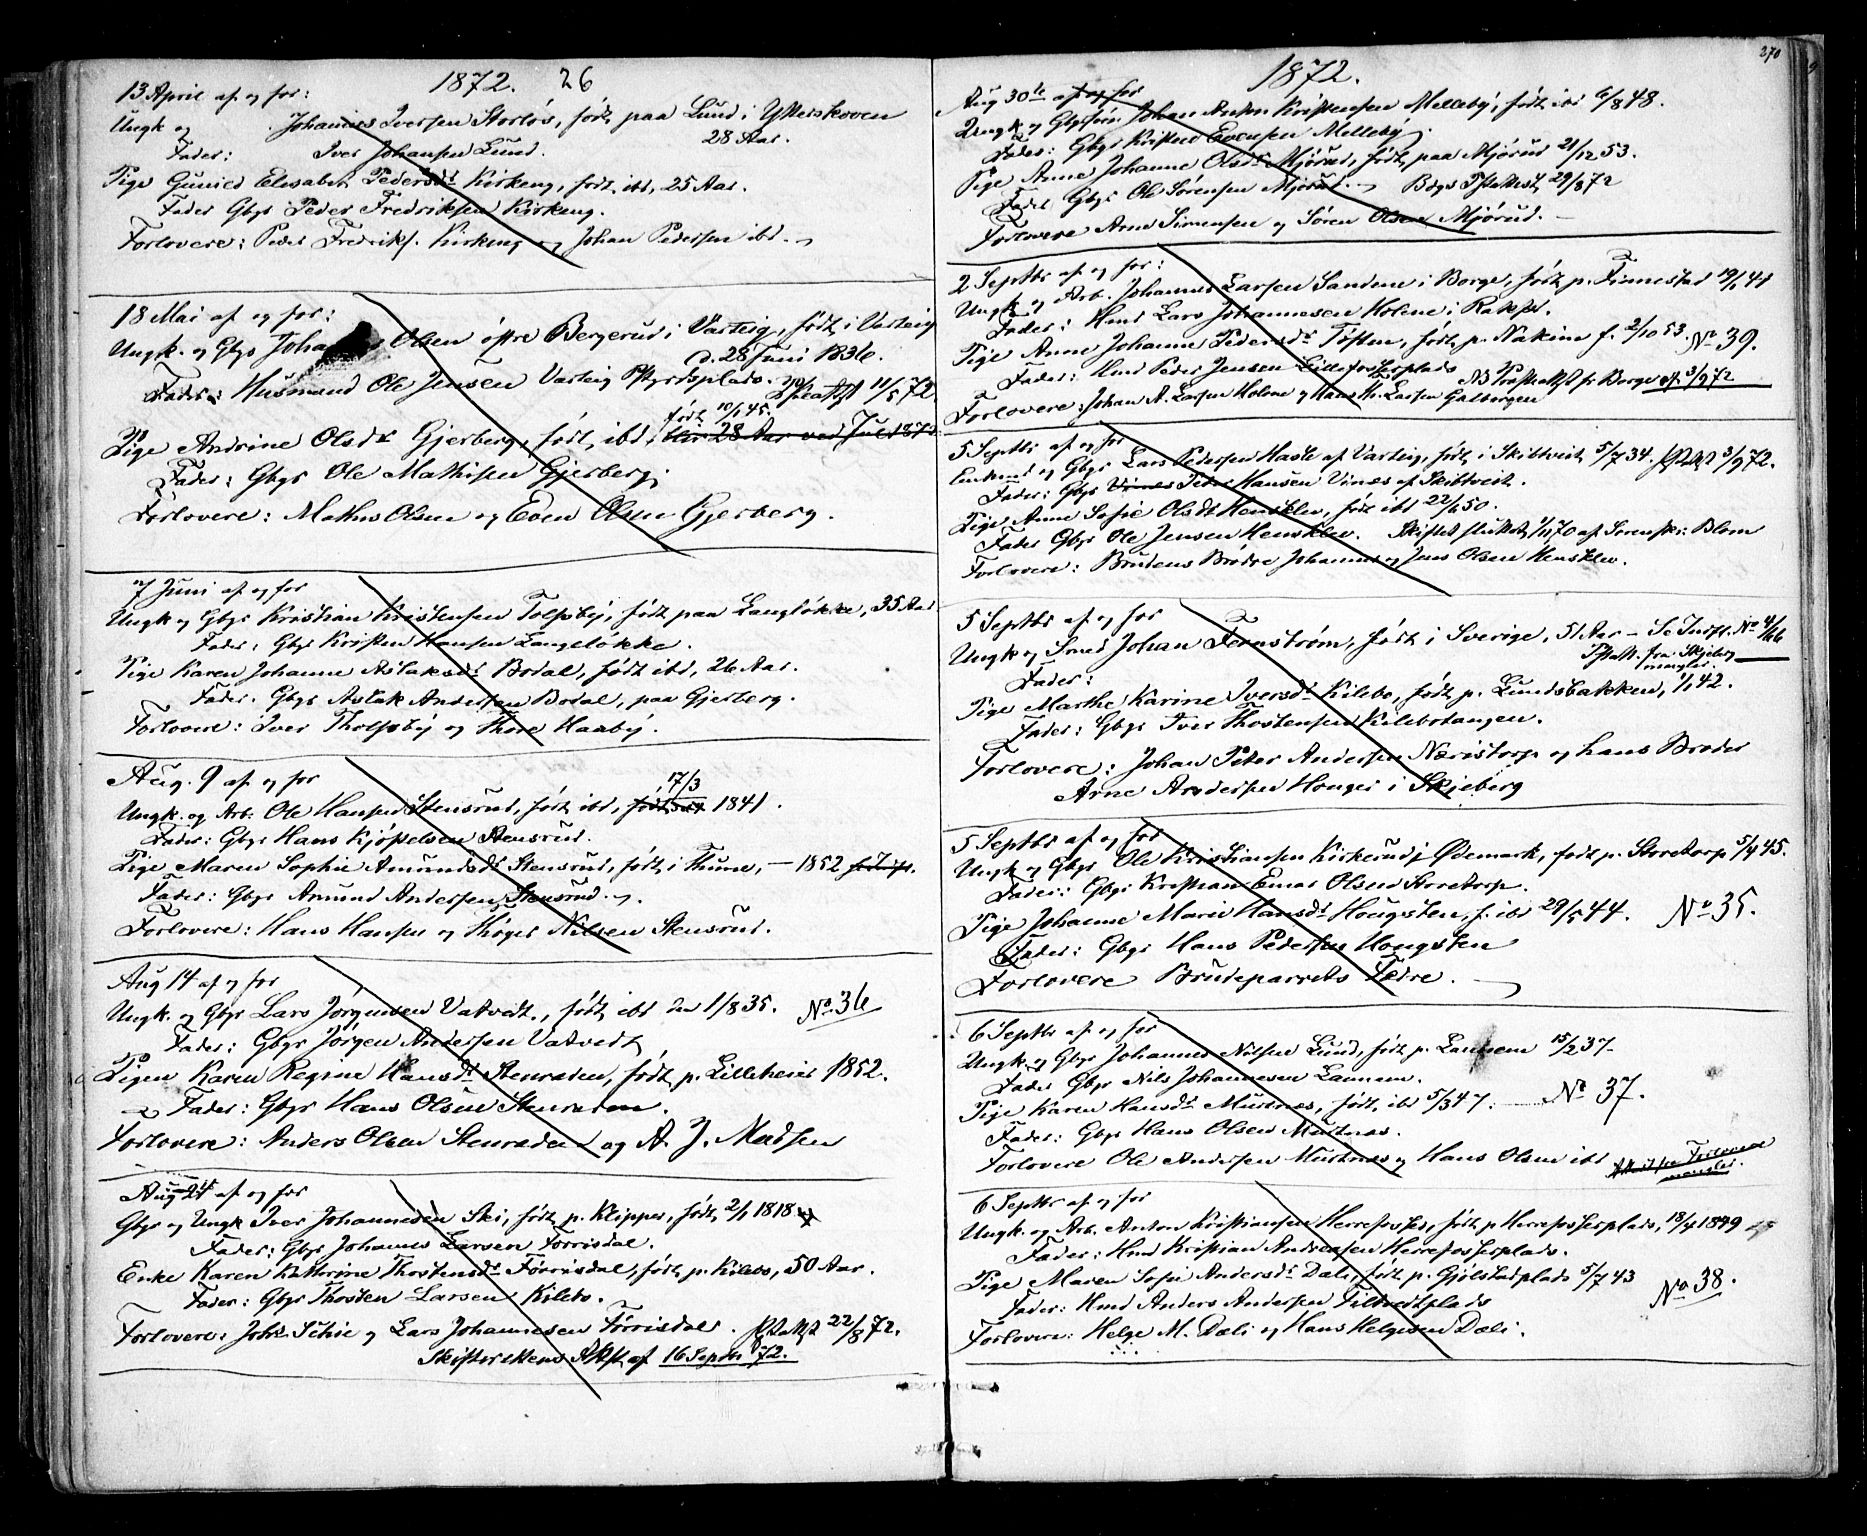 1872. 26
13 April af og for:
Ungk og Johannes Iversen Storløs, født paa Lund i Ytterskoven
28 Aar.
Fader: Iver Johansen Lund.
Pige Gunild Elisabet Pedersdt Kirkeng, født ibd, 25 Aar.
Fader Gbgr Peder Fredriksen Kirkeng.
Forlovere: Peder Fredriks. Kirkeng og Johan Pedersen ibd.
18 Mai af og for:
Ungk. og Gbgr Johannes Olsen østre Bergerud i Varteig, født i Varteig
d. 28 Juni 1836.
Fader: Husmand Ole Jensen Varteig Prgrdsplads. 11/5 72
født 10/1 45.
Pige Andrine Olsdt Gjerberg, født ibd, bliv 28 Aar ved Jul 187
Fader: Gbgr Ole Mathisen Gjerberg.
Forlovere: Mathis Olsen og Even Olsen Gjerberg.
7 Juni af og for
Ungk og Gbgr Kristian Kristensen Tolfsby, født paa Langløkke, 35 Aar
Fader: Gbgr Kristen Hansen Langeløkke.
Pige Karen Johanne Aslaksdt Bodal, født ibd, 26 Aar.
Fader. Gbgr Aslak Andersen Bodal, paa Gjerberg.
Forlovere: Iver Tholfsby og Thore Haaby.
Aug. 9 af og for
17/3
Ungk. og Arb. Ole Hansen Stensrud, født ibd, født 1841.
Fader: Gbgr Hans Kjøstelsen Stensrud.
Pige Maren Sophie Amundsdt Stensrud, født i Thune, — 1852
Fader: Gbgr Amund Andersen Stensrud.
Forlovere: Hans Hansen og Thøger Nilsen Stensrud.
Aug 14 af og for
Ungk. og Gbgr Lars Jørgensen Vatvedt, født ibd den 1/8 35. No 36
Fader: Gbgr Jörgen Andersen Vatvedt
Pigen Karen Regine Hansdt Stenraden, født p. Lilleheier 1852.
Fader: Gbgr Hans Olsen Stenraden.
Forlovere: Anders Olsen Stenraden og A. J. Madsen
Aug 24 af og for
Gbgr og Ungk Iver Johannesen Ski, født p. Klipper, født 2/1 1818
Fader: Gbgr Johannes Larsen Torrisdal.
Enke Karen Kathrine Thostensdt Törrisdal, født p. Kilebo, 50 Aar.
Fader: Gbgr Thosten Larsen Kilebo.
Forlovere: Johs. Schie og Lars Johannesen Törrisdal. 22/8 72.
Skifterettens Attst af 16 Septbr 72.
270
1872.
Aug 30te af og for
Ungk og Gbgrsøn Johan Anton Kristensen Melleby, født ibd 6/8 48.
Fader: Gbgr Kristen Evensen Melleby.
Pige Anne Johanne Olsdt Mjørud, født paa Mjørud 21/12 53.
Fader Gbgr Ole Sørensen Mjørud. 29/8 72
Forlovere Arne Simensen og Søren Olsen Mjørud.
2 Septbr af og for:
Ungk og Arb. Johannes Larsen Sandene i Borge, født p. Finnestad 19/1 44
Fader: Hmd Lars Johannesen Holene i Rakkst.
Pige Anne Johanne Pedersdt Töften, født p. Nakim f. 2/10 53. No 39.
Fader: Hmd Peder Jensen Lillefosserplads
Forlovere: Johan A. Larsen Holene og Hans Kr. Larsen Galbergen
5 Septbr af og for
Enkmd og Gbgr Lars Pedersen Hasle af Varteig, født i Skibtveit 5/7 34. 3/9 72.
Fader: Gbgr Vines Peder Hansen Vines af Skibtveit.
Pige Anne Sofie Olsdt Hensklev, født ibd 22/1 50.
Fader Gbgr Ole Jensen Hensklev. Skiftet sluttet 1/11 70 af Sorenskr: Blom
Forlovere: Brudens Brødre Johannes og Jens Olsen Hensklev.
5 Septbr af og for
Ungk og Smed Johan Fernstrøm, født i Sverige, 51 Aar — No 4/66
fra Skjeberg
mangler.
Fader:
Pige Marthe Karine Iversdt Kilebo, født p. Lundsbakken, 1/1 42.
Fader: Gbgr Iver Thostensen Kilebotangen.
Forlovere: Johan Peter Andersen Næristorp og hans Broder
Arne Andersen Honger i Skjeberg
5 Septbr af og for
Ungk og Gbgr Ole Kristiansen Kirkerud i Ødemark, født p. Storetorp 5/4 45.
Fader: Gbgr Kristian Enar Olsen Storetorp.
Pige Johanne Marie Hansdt Hougsten, f. ibd 29/5 44. No 35.
Fader: Gbgr Hans Pedersen Hougsten
Forlovere Brudeparrets Fædre.
6 Septbr af og for
Ungk og Gbgr Johannes Nilsen Lund, født p. Lannem 15/2 37.
Fader Gbgr Nils Johannesen Lannem.
Pige Karen Hansdt Mustnæs, født ibd 5/3 47. No 37.
Fader: Gbgr Hans Olsen Mustnæs.
Forlovere Ole Andersen Mustnæs og Hans Olsen ibd Attest fra Forlovere
mangler.
6 Septbr af og for
Ungk. og Arb. Anton Kristiansen Herrefosser, født p Herrefosserplads, 18/4 1849
Fader: Hmd Kristian Andersen Herrefosserplads.
Pige Maren Sofie Andersdt Dali, født p. Gjølstadplads 5/7 43 No 38.
Fader: Hmd Anders Andersen Tiltvedtplads
Forlovere: Helge M. Dæli og Hans Helgesen Dæli.